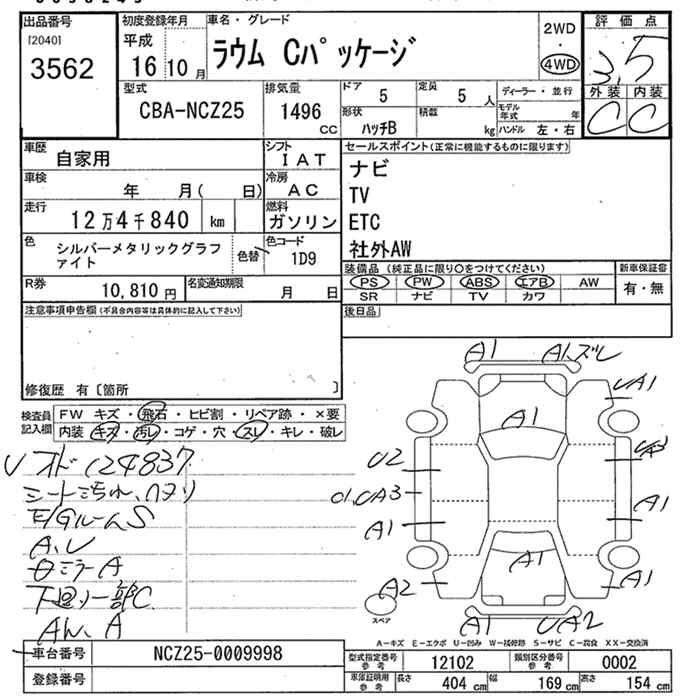 出品番号
[2040]
3562
初度登録年月
平成
16年10月
車名・グレード
ラウム Cパッケージ
2WD
・
4WD
評価点
3.5
外装 内装
C C
型式
CBA-NCZ25
排気量
1496
cc
ドア
5
定員
5 人
形状
ハッチB
積載
kg
ディーラー・並行
モデル年式 年
ハンドル 左・右
車歴
自家用
シフト
IAT
車検
年 月( 日)
冷房
AC
走行
12万4千840 km
燃料
ガソリン
色
シルバーメタリックグラファイト
色替
色コード
1D9
R券
10,810 円
名変通知期限
月 日
セールスポイント(正常に機能するものに限ります)
ナビ
TV
ETC
社外AW
装備品 (純正品に限り○をつけてください)
PS PW ABS エアB AW
SR ナビ TV カワ
新車保証書
有・無
後日品
注意事項申告欄(不具合内容等は具体的に記入して下さい)
修復歴 有〔箇所 〕
検査員記入欄
FW キズ・飛石・ヒビ割・リペア跡・×要
内装 キズ・汚レ・コゲ・穴・スレ・キレ・破レ
124837
A.U
下廻り一部C
A1
A1.ズレ
UA1
A1
U2
A1
A1
A1
A2
A1
A1
UA2
スペア
A-キズ E-エクボ U-凹み W-補修跡 S-サビ C-腐食 XX-交換済
車台番号
NCZ25-0009998
登録番号
型式指定番号
参考
12102
類別区分番号
参考
0002
車庫証明用
参考
長さ
404 cm
幅
169 cm
高さ
154 cm